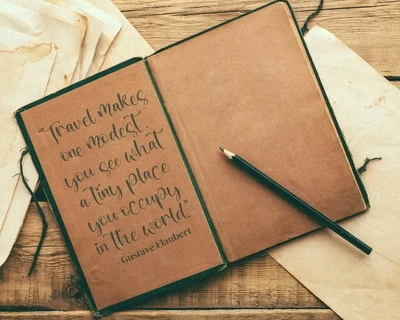 "Travel makes
one modest.
you see what
a tiny place
you occupy
in the world".
- Gustave Flaubert